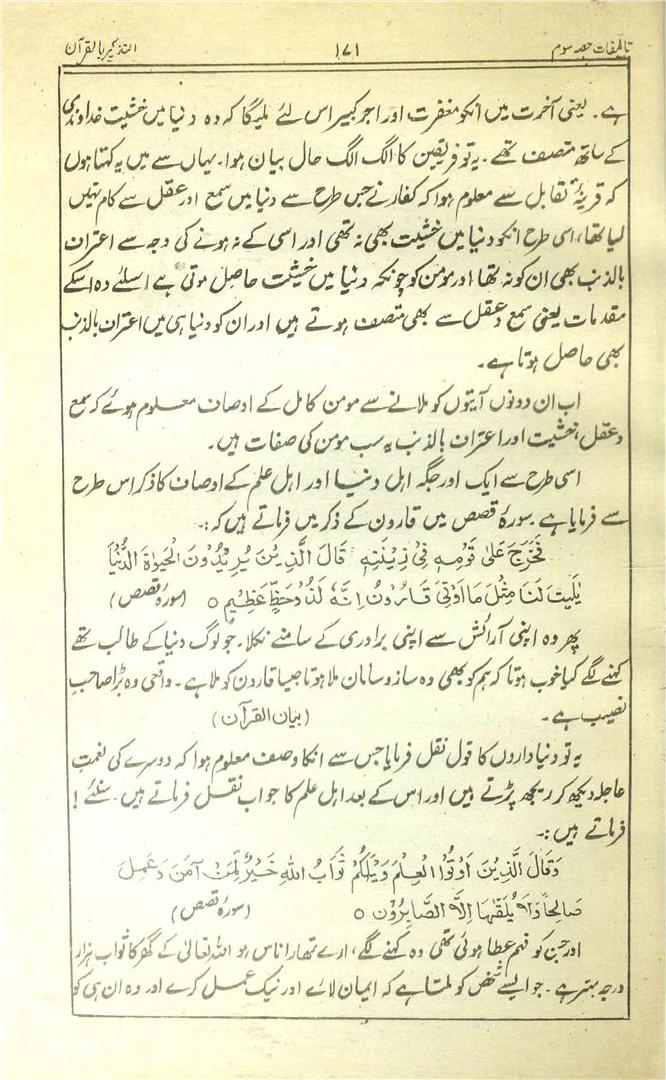 تالیفات حصہ سوم ۱۷۱ التذکیر بالقرآن
ہے۔ یعنی آخرت میں انکو مغفرت اور اجر کبیر اس لئے ملیگا کہ وہ دنیا میں خشیت خداوندی
کے ساتھ متصف تھے۔ یہ تو فریقین کا الگ الگ حال بیان ہوا۔ یہاں سے میں یہ کہتا ہوں
کہ قرینۂ تقابل سے معلوم ہوا کہ کفار نے جس طرح سے دنیا میں سمع اور عقل سے کام نہیں
لیا تھا، اسی طرح انکو دنیا میں خشیت بھی نہ تھی اور اسی کے نہ ہونے کی وجہ سے اعتراف
بالذنب بھی ان کو نہ تھا اور مومن کو چونکہ دنیا میں خشیت حاصل ہوتی ہے اسلئے وہ اسکے
مقدمات یعنی سمع و عقل سے بھی متصف ہوتے ہیں اور ان کو دنیا ہی میں اعتراف بالذنب
بھی حاصل ہوتا ہے۔
اب ان دونوں آیتوں کو ملانے سے مومن کامل کے اوصاف معلوم ہوئے کہ سمع
و عقل، خشیت اور اعتراف بالذنب یہ سب مومن کی صفات ہیں۔
اسی طرح سے ایک اور جگہ اہل دنیا اور اہل علم کے اوصاف کا ذکر اس طرح
سے فرمایا ہے سورۂ قصص میں قارون کے ذکر میں فرماتے ہیں کہ:۔
فَخَرَجَ عَلٰی قَوْمِهٖ فِیْ زِیْنَتِهٖ قَالَ الَّذِیْنَ یُرِیْدُوْنَ الْحَیٰوةَ الدُّنْیَا
یٰلَیْتَ لَنَا مِثْلَ مَا اُوْتِیَ قَارُوْنُ اِنَّهٗ لَذُوْحَظٍّ عَظِیْمٍ ○ (سورۂ قصص)
پھر وہ اپنی آرائش سے اپنی برادری کے سامنے نکلا۔ جو لوگ دنیا کے طالب تھے
کہنے لگے کیا خوب ہوتا کہ ہم کو بھی وہ ساز و سامان ملا ہوتا جیسا قارون کو ملا ہے۔ واقعی وہ بڑا صاحبِ
نصیب ہے۔ (بیان القرآن)
یہ تو دنیاداروں کا قول نقل فرمایا جس سے انکا وصف معلوم ہوا کہ دوسرے کی نعمتِ
عاجلہ دیکھ کر ریجھ پڑتے ہیں اور اس کے بعد اہل علم کا جواب نقل فرماتے ہیں۔ سنئے!
فرماتے ہیں:۔
وَقَالَ الَّذِیْنَ اُوْتُوا الْعِلْمَ وَیْلَکُمْ ثَوَابُ اللّٰهِ خَیْرٌ لِّمَنْ آمَنَ وَعَمِلَ
صَالِحًا وَلَا یُلَقّٰهَا اِلَّا الصَّابِرُوْنَ ○ (سورۂ قصص)
اور جن کو فہم عطا ہوئی تھی وہ کہنے لگے، ارے تمہارا ناس ہو اللہ تعالیٰ کے گھر کا ثواب ہزار
درجہ بہتر ہے۔ جو ایسے شخص کو ملتا ہے کہ ایمان لائے اور نیک عمل کرے اور وہ ان ہی کو